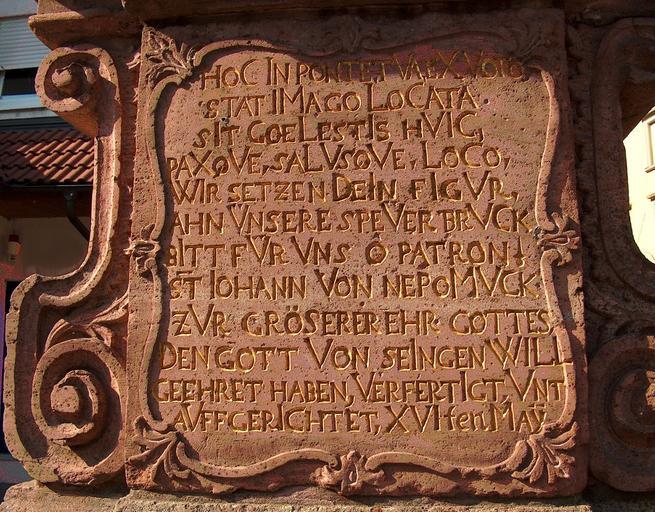 HOC IN PONTE TVA EX VOTO
STAT IMAGO LOCATA
SIT COELESTIS HVIC,
PAXQVE, SALVSQVE, LOCO,
WIR SETZEN DEIN FIGVR,
AHN VNSERE SPEYERBRVCK
BITT FVR VNS O PATRON!
ST IOHANN VON NEPOMVCK
ZVR GRÖSERER EHR GOTTES
DEN GOTT VON SEINGEN WILL
GEEHRET HABEN, VERFERTIGT, VNT
AVFFGERICHTET, XVIten MAY